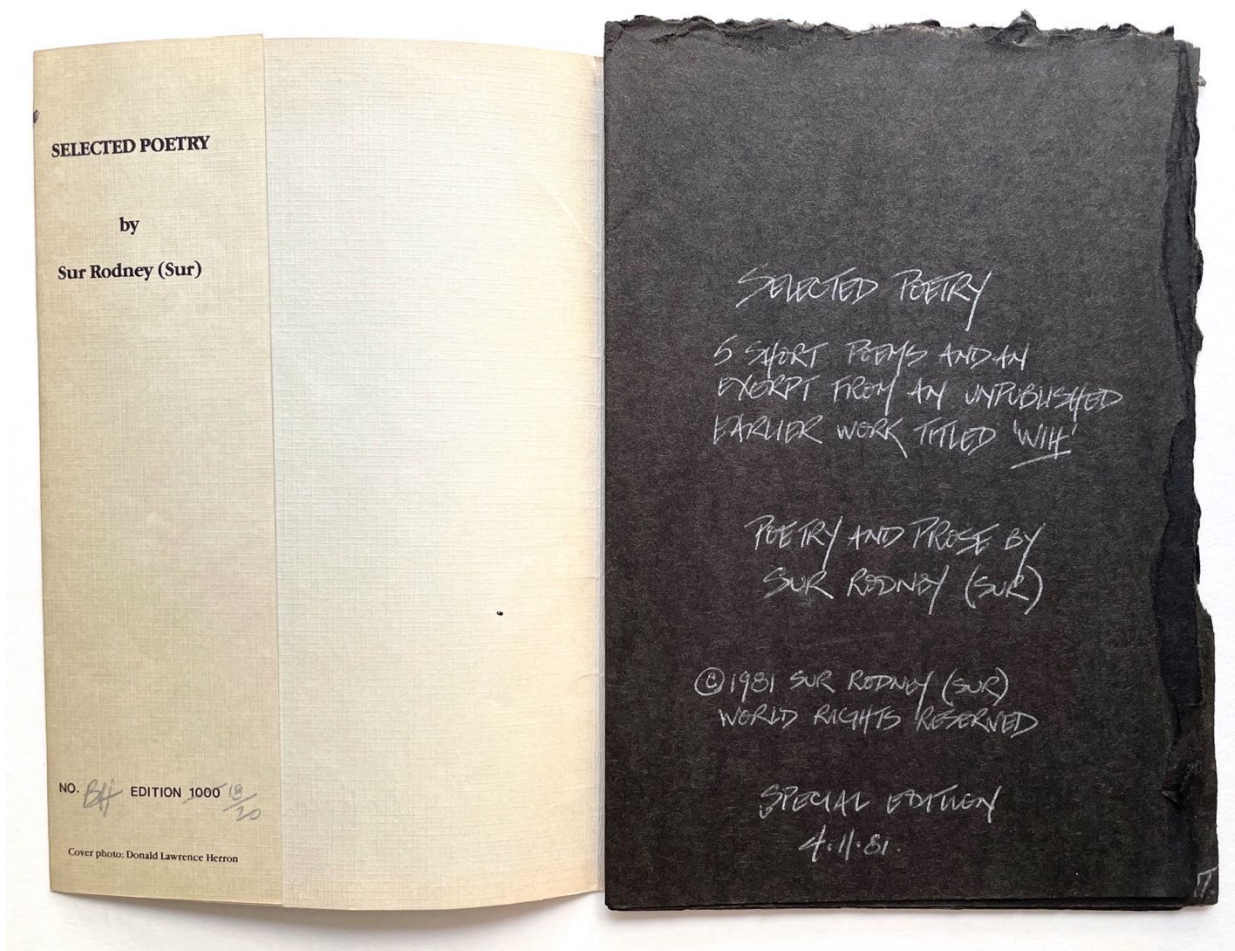 SELECTED POETRY
by
Sur Rodney (Sur)
NO. EDITION 1000 18/20
Cover photo: Donald Lawrence Herron
SELECTED POETRY
5 SHORT POEMS AND AN
EXERPT FROM AN UNPUBLISHED
EARLIER WORK TITLED 'WIH'
POETRY AND PROSE BY
SUR RODNEY (SUR)
©1981 SUR RODNEY (SUR)
WORLD RIGHTS RESERVED
SPECIAL EDITION
4.11.81.